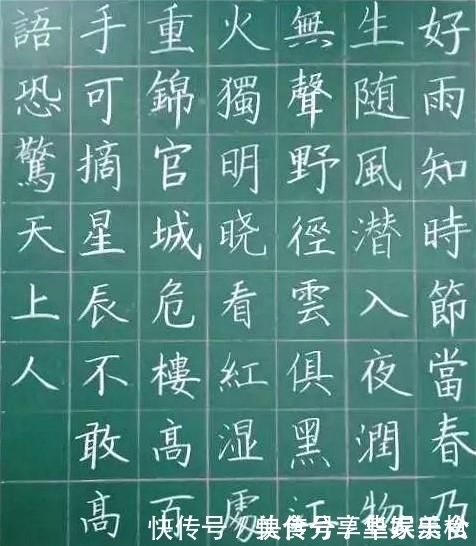 好雨知時節當春乃
生随風潜入夜潤物
無聲野徑雲俱黑江
火獨明晓看紅湿處
重錦官城危樓高百
手可摘星辰不敢高
語恐驚天上人
快传号/